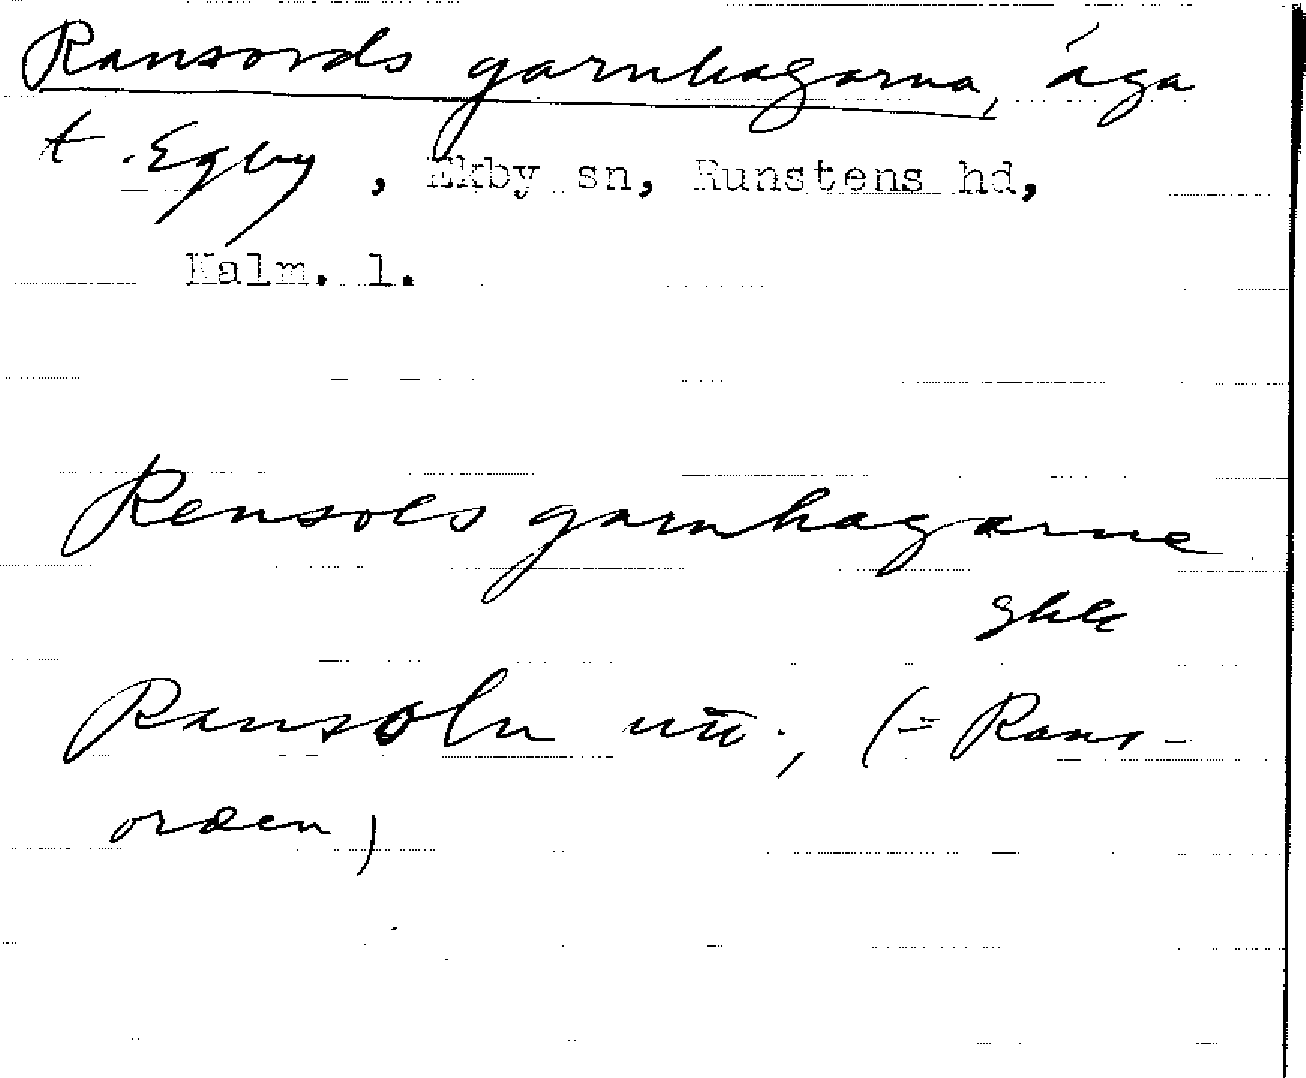 Ransords garnhagarna, äga
t. Egby, Ekby sn, Runstens hd,
Kalm. l.
Rensols garnhagarne
Ransoln utt., (= Rans-
orden)